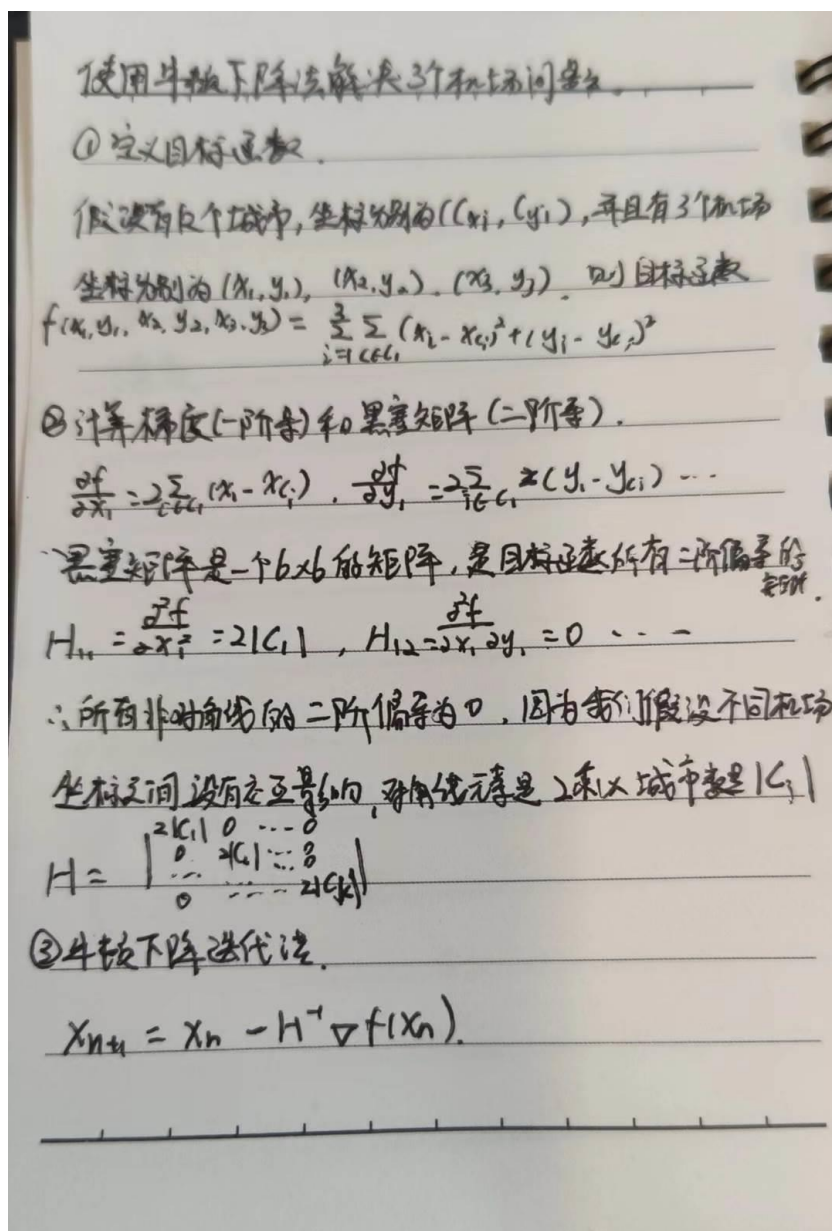 使用牛顿下降法解决3个机场问题。
①定义目标函数.
假设有n个城市,坐标分别为((xi,(yi),并且有3个机场
坐标分别为(x₁,y₁), (x₂,y₂), (x₃,y₃). 则目标函数
f(x₁,y₁,x₂,y₂,x₃,y₃) = Σ³ᵢ₌₁ Σ_{c∈Cᵢ} (xᵢ - x_{cᵢ})² + (yᵢ - y_{cᵢ})²
②计算梯度(一阶导)和黑塞矩阵(二阶导).
∂f/∂x₁ = 2Σ_{i∈C₁}(x₁ - x_{Cᵢ}), ∂f/∂y₁ = 2Σ_{i∈C₁} 2(y₁ - y_{ci}) ...
∵黑塞矩阵是一个6×6的矩阵,是目标函数所有二阶偏导的
H₁₁ = ∂²f/∂x₁² = 2|C₁|, H₁₂ = ∂²f/∂x₁∂y₁ = 0 ...
∴所有非对角线的二阶偏导为0,因为我们假设不同机场
坐标之间没有交互影响,对角线元素是2乘以城市数量|Cᵢ|
2|C₁| 0 ... 0
0 2|C₁| ... 0
H =
0 ... 2|C₃|
③牛顿下降迭代法.
Xₙ₊₁ = Xₙ - H⁻¹∇f(Xₙ).